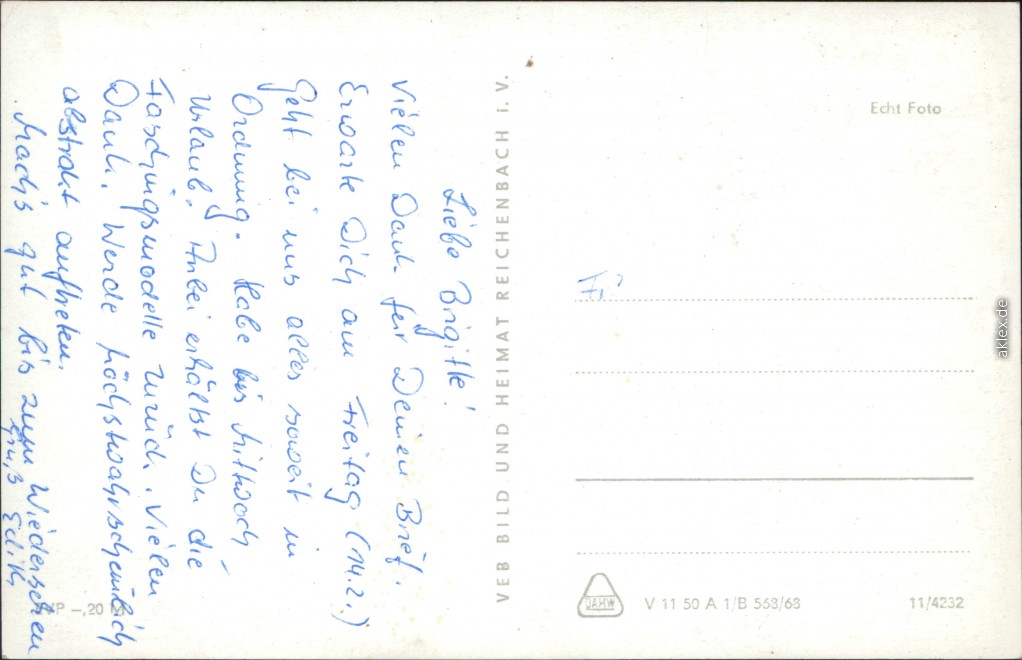 Liebe Brigitte!
Vielen Dank für Deinen Brief.
Erwarte Dich am Freitag (14.2.)
Geht bei uns alles soweit in
Ordnung. Habe bis Mittwoch
Urlaub. Anbei erhältst Du die
Faschingsmodelle zurück. Vielen
Dank. Werde höchstwahrscheinlich
abstrakt auftreten.
Mach's gut bis zum Wiedersehen
Gruß
VEB BILD UND HEIMAT REICHENBACH I. V.
Echt Foto
DAHW
V 11 50 A 1/B 563/63
11/4232
–,20 M
aklex.de